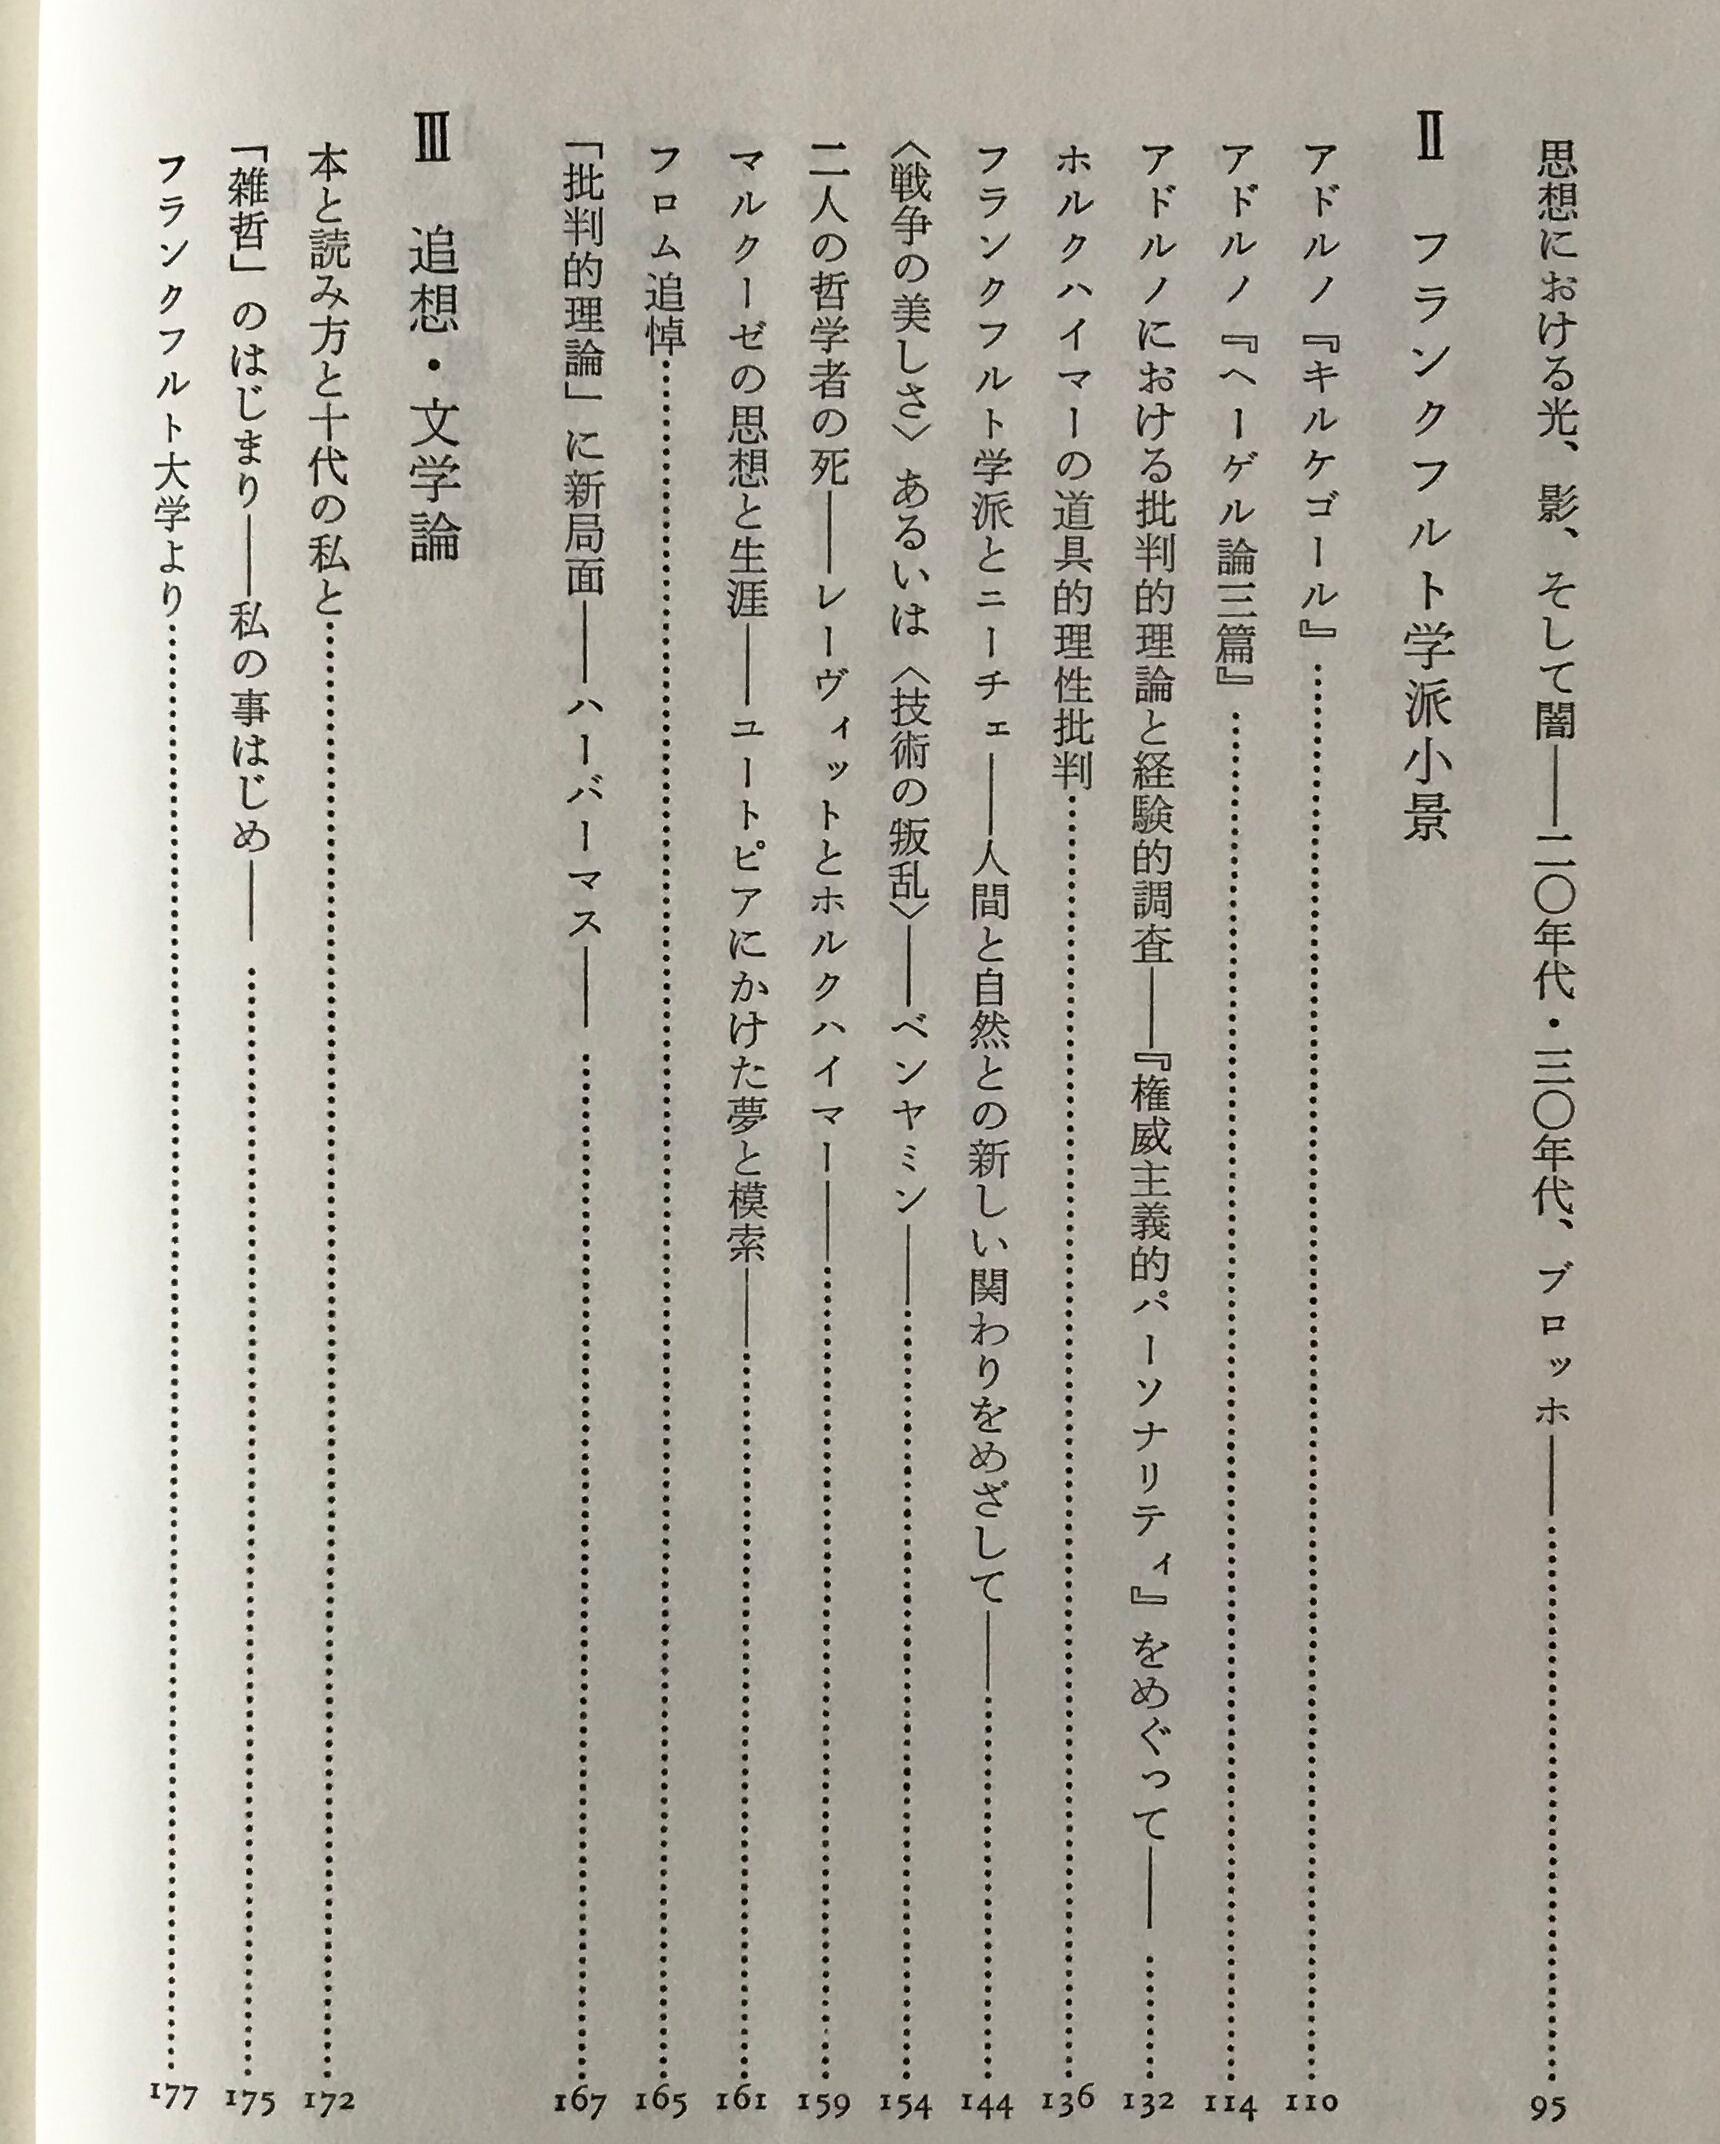 思想における光、影、そして闇――二〇年代・三〇年代、ブロッホ――………95
Ⅱ　フランクフルト学派小景
アドルノ『キルケゴール』………110
アドルノ『ヘーゲル論三篇』………114
アドルノにおける批判的理論と経験的調査――『権威主義的パーソナリティ』をめぐって――………132
ホルクハイマーの道具的理性批判………136
フランクフルト学派とニーチェ――人間と自然との新しい関わりをめざして――………144
〈戦争の美しさ〉あるいは〈技術の叛乱〉――ベンヤミン――………154
二人の哲学者の死――レーヴィットとホルクハイマー――………159
マルクーゼの思想と生涯――ユートピアにかけた夢と模索――………161
フロム追悼………165
「批判的理論」に新局面――ハーバーマス――………167
Ⅲ　追想・文学論
本と読み方と十代の私と………172
「雑哲」のはじまり――私の事はじめ――………175
フランクフルト大学より………177